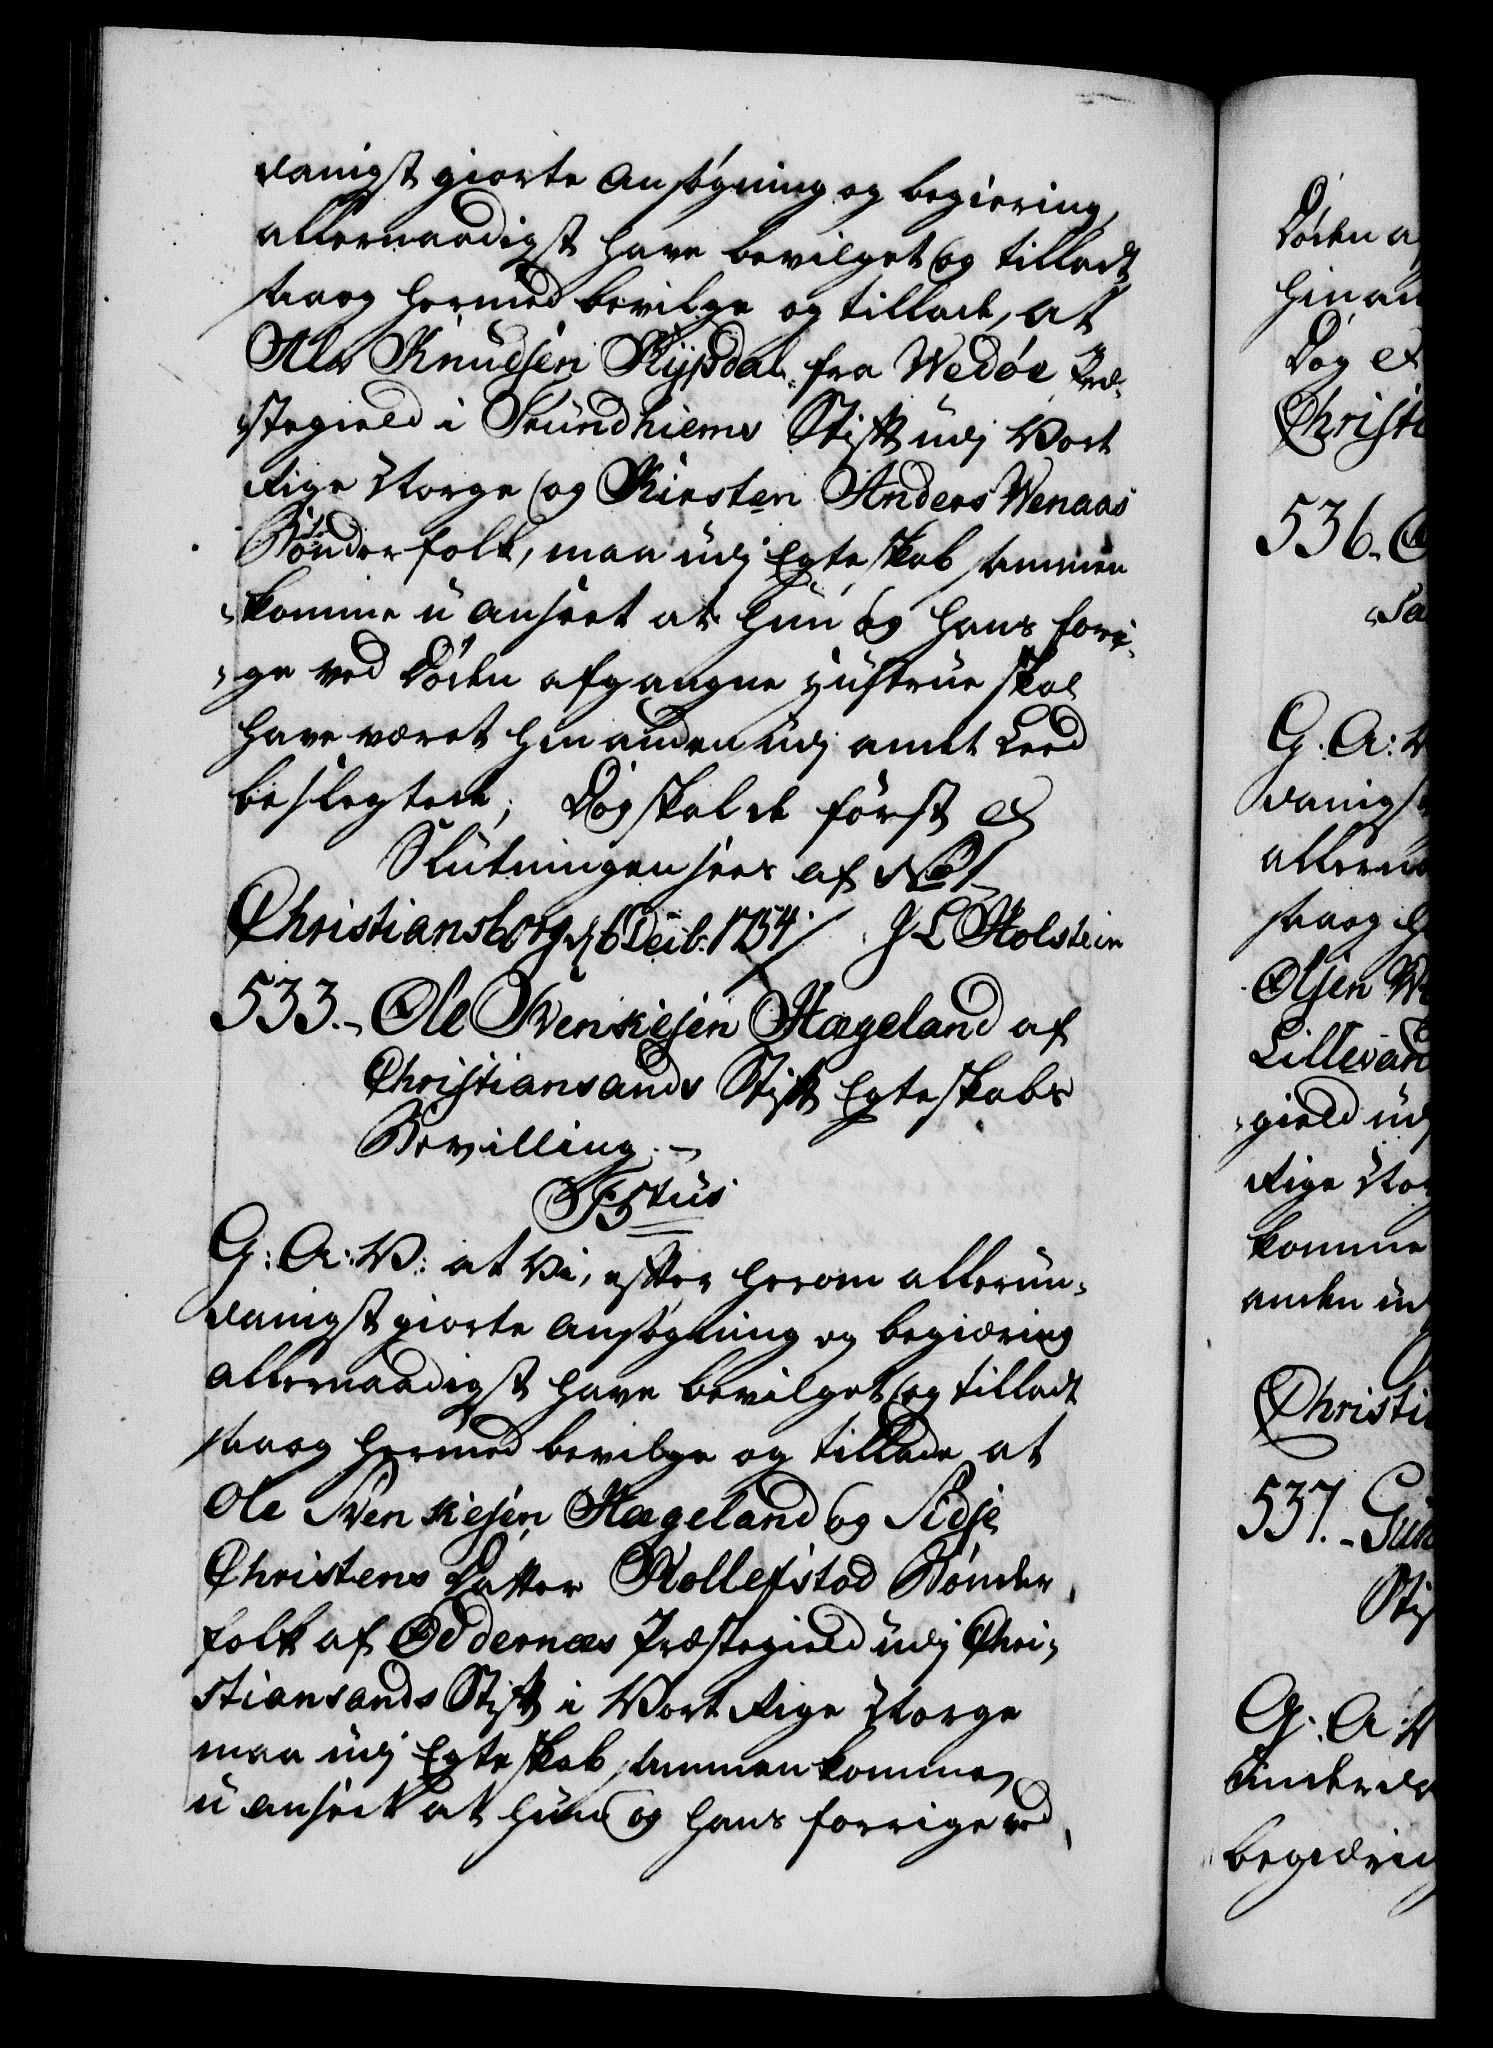 danigst giorte Ansøgning og begiering,
allernaadigst have bevilget og tilladt,
saaog hermed bevilge og tillade, at
Ale Knudsen Rypdal fra Wedøe Præ-
stegield i Trundhiems Stift udj Vort
Rige Norge og Kirsten Anders Wenaas
Bønderfolk, maa udj Egteskab sammen
komme u anseet at hun og hans fori-
ge ved Døden afgangne hustrue skal
have været hinanden udj andet Leed
beslegtede; Dog skal de først &
Slutningen sees af No 1
Christiansborg d 6 Decib. 1754 / J L Holstein
533. Ole Svenkesen Hageland af
Christiansands Stift Egteskabs
Bevilling.
F5tus
G: A: V: at Vi, efter herom allerun-
danigst giorte Ansøgning og begiæring
allernaadigst have bevilget og tilladt
saaog hermed bevilge og tillade at
Ole Svenkesen Hageland og Sidsje
Christens Datter Kollefstad Bønder
folk af Oddernæs Præstegield udj Chri-
stiansands Stift i Vort Rige Norge
maa udj Egteskab sammenkomme,
u anseet at hun og hans forrige ved
Døden a
hinan
Dog &
Christi
536.
G: A: V
danigst
allerna
saaog h
Olsen
Lillevand
gield udj
Rige Nor
komme
anden ud
Christi
537. Gun
Stif
G: A: V
underda
begiærin